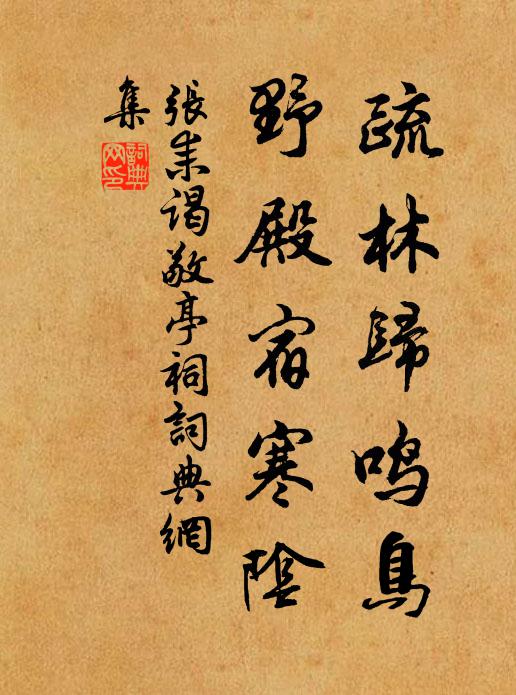 疏林歸鳴鳥
野殿宿寒陰
張耒謁敬亭祠詞典網
集
詞典
网印